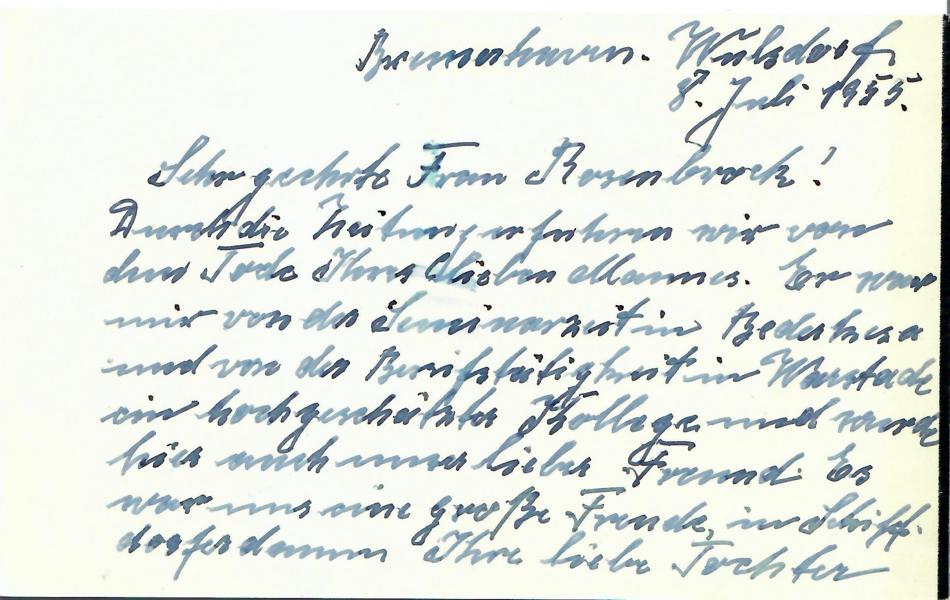 Bremerhaven. Wulsdorf,
8. Juli 1955.
Sehr geehrte Frau Rosenbrock!
Durch die Zeitung erfuhren wir von
dem Tode Ihres lieben Mannes. Er war
mir von der Seminarzeit in Bederkesa
und von der Berufstätigkeit in Warstade
ein hochgeschätzter Kollege und wurde
hier auch unser lieber Freund. Es
war uns eine große Freude, in Schiff-
dorferdamm Ihre liebe Tochter